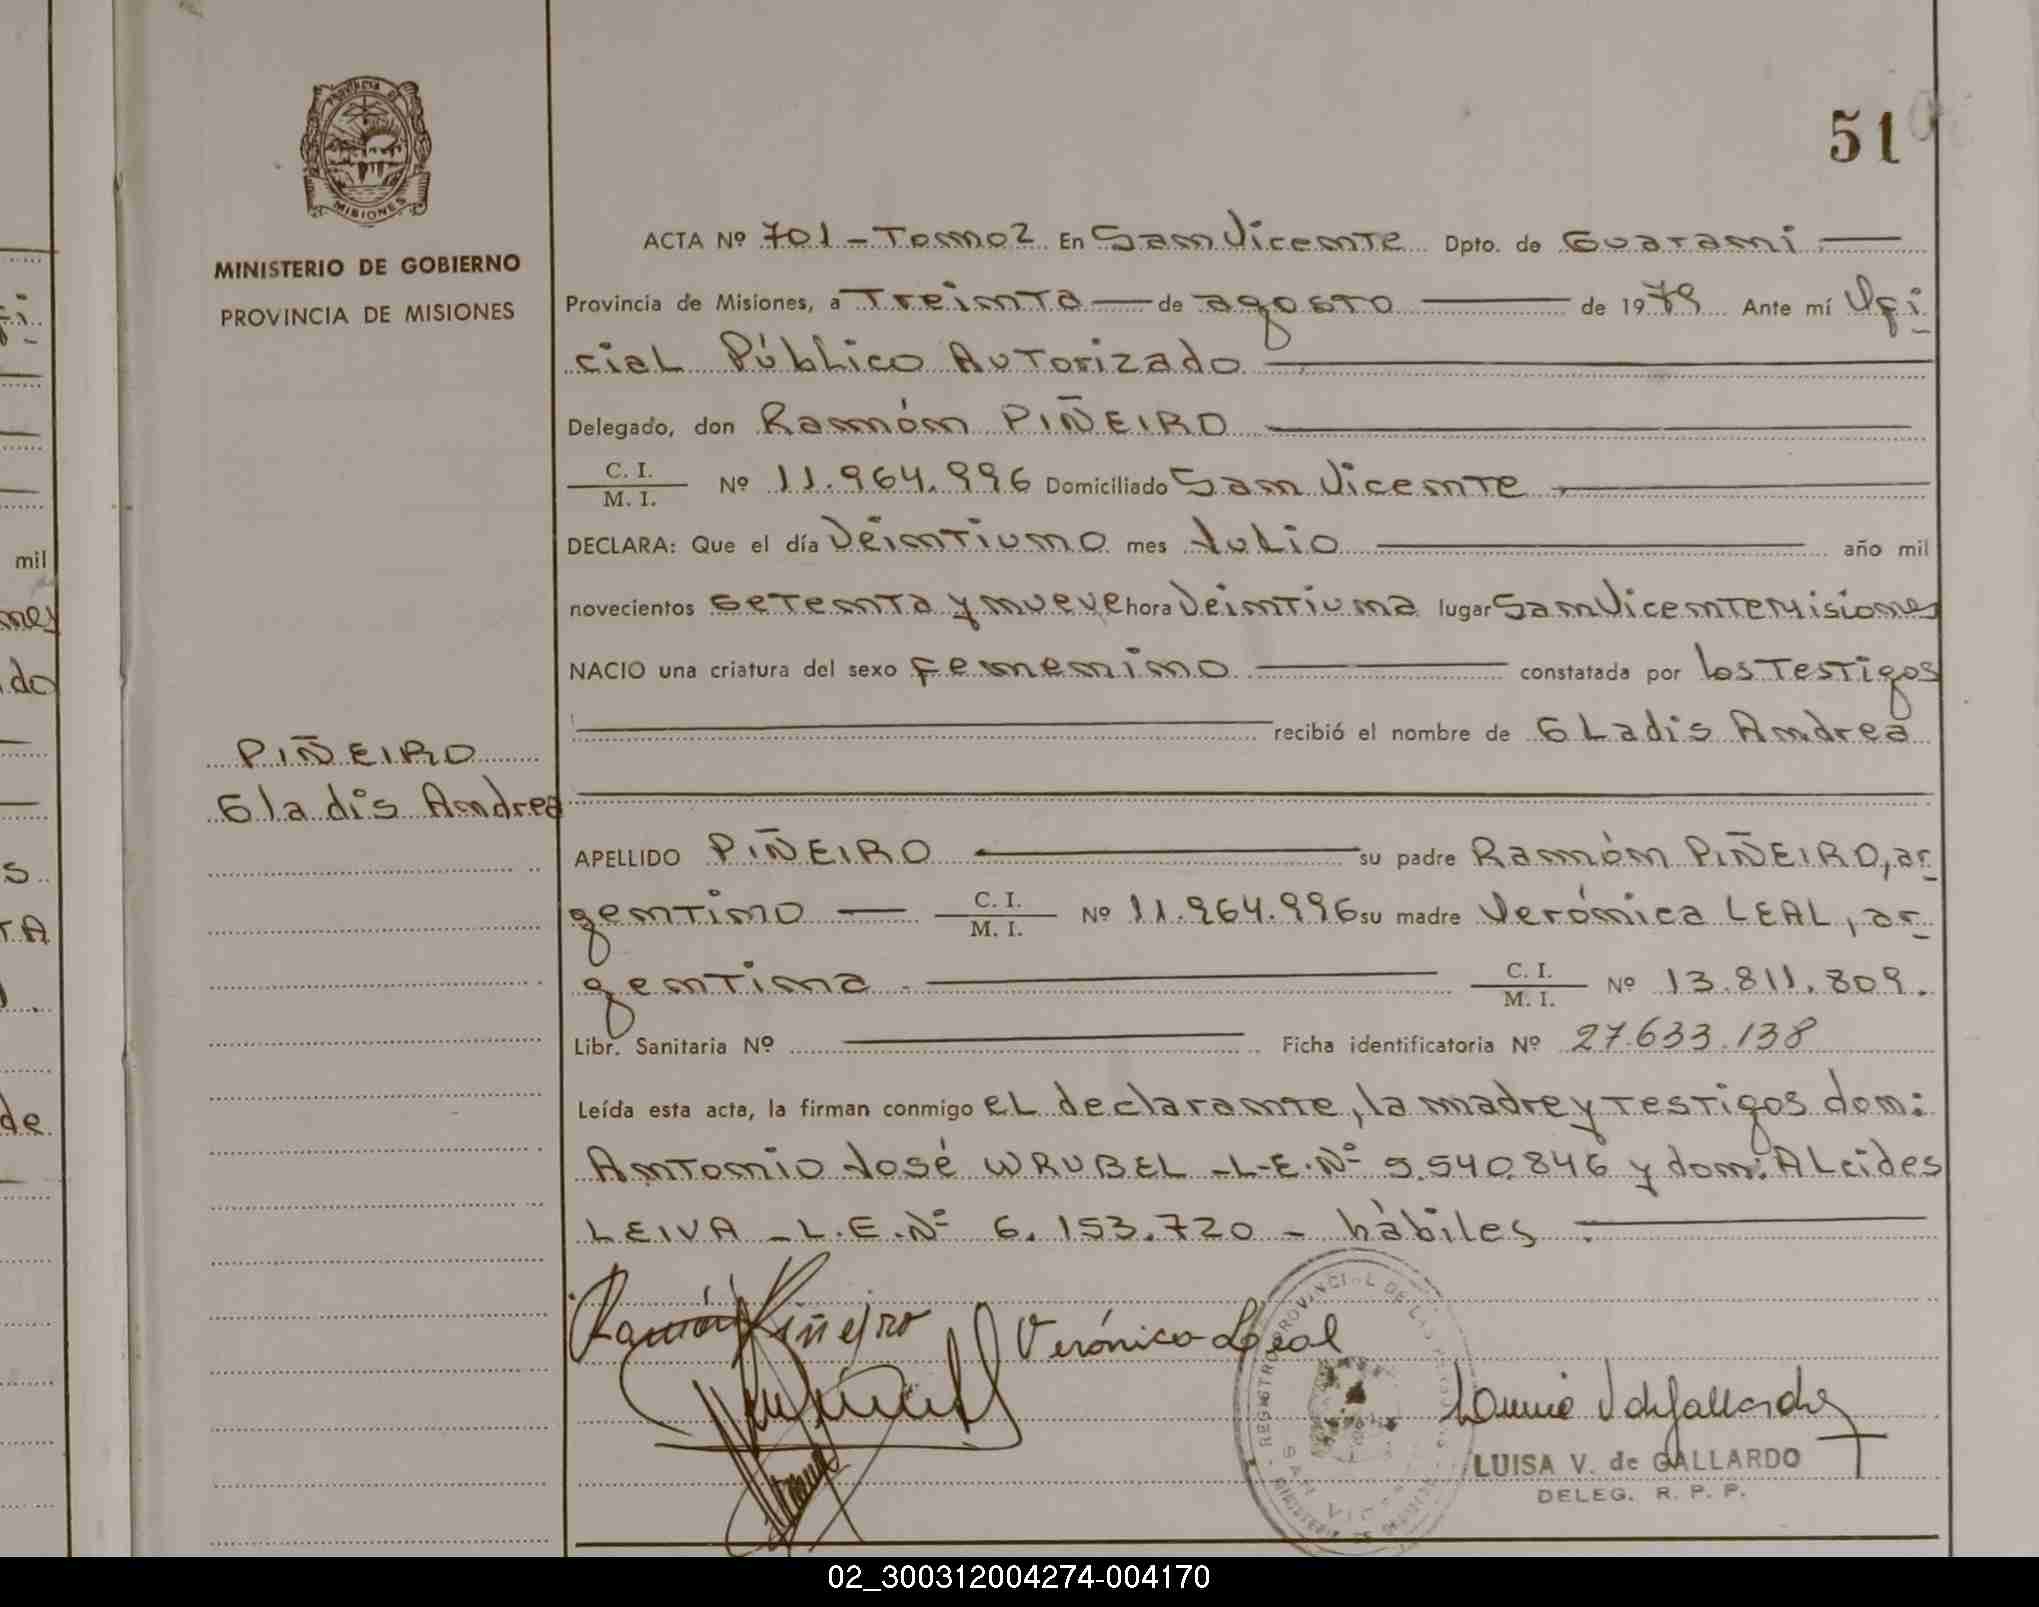 PROVINCIA DE
MISIONES
MINISTERIO DE GOBIERNO
PROVINCIA DE MISIONES
51
ACTA Nº 701 - Tomo 2 En San Vicente Dpto. de Guaraní
Provincia de Misiones, a Treinta de agosto de 1979 Ante mí Ofi
cial Público Autorizado
Delegado, don Ramón PIÑEIRO
C. I.
M. I. Nº 11.964.996 Domiciliado San Vicente
DECLARA: Que el día Veintiuno mes Julio año mil
novecientos setenta y nueve hora Veintiuna lugar San Vicente Misiones
NACIO una criatura del sexo femenino constatada por los Testigos
recibió el nombre de Gladis Andrea
PIÑEIRO
Gladis Andrea
APELLIDO PIÑEIRO su padre Ramón PIÑEIRO, ar
gentino C. I. M. I. Nº 11.964.996 su madre Verónica LEAL, ar
gentina C. I. M. I. Nº 13.811.809.
Libr. Sanitaria Nº Ficha identificatoria Nº 27.633.138
Leída esta acta, la firman conmigo el declarante, la madre y testigos don:
Antonio José WRUBEL - L.E.Nº 5.540.846 y don: Alcides
LEIVA - L.E.Nº 6.153.720 - hábiles
Ramón Piñeiro Verónica Leal
REGISTRO PROVINCIAL DE LAS
SAN VIC
LUISA V. de GALLARDO
DELEG. R. P. P.
mil
do
S
TA
de
02_300312004274-004170